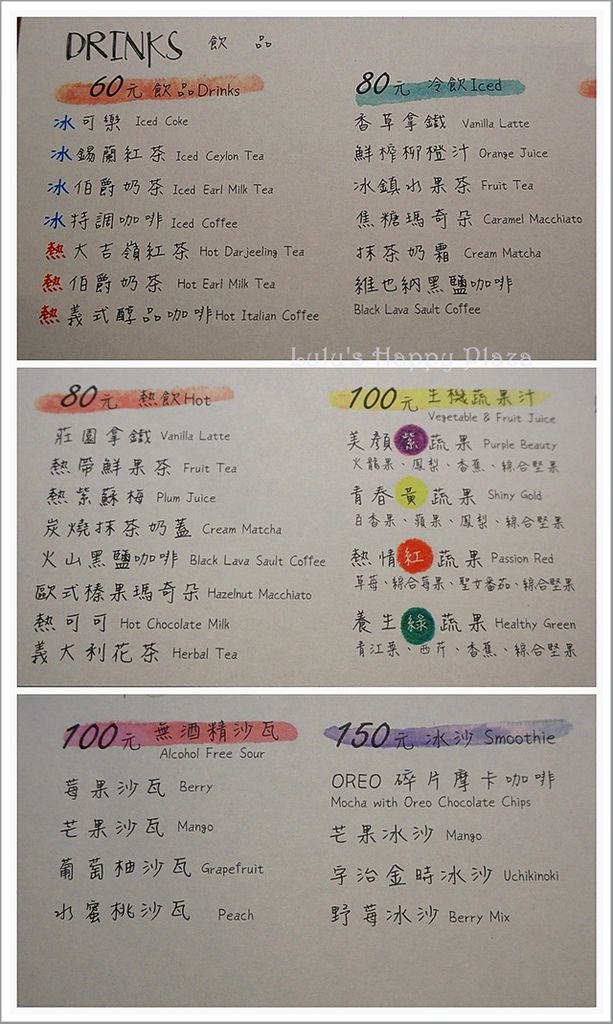 DRINKS 飲 品
60元 飲品Drinks
冰可樂 Iced Coke
冰錫蘭紅茶 Iced Ceylon Tea
冰伯爵奶茶 Iced Earl Milk Tea
冰特調咖啡 Iced Coffee
熱大吉嶺紅茶 Hot Darjeeling Tea
熱伯爵奶茶 Hot Earl Milk Tea
熱義式醇品咖啡 Hot Italian Coffee
80元 冷飲Iced
香草拿鐵 Vanilla Latte
鮮榨柳橙汁 Orange Juice
冰鎮水果茶 Fruit Tea
焦糖瑪奇朵 Caramel Macchiato
抹茶奶霜 Cream Matcha
維也納黑鹽咖啡
Black Lava Sault Coffee
Lulu's Happy Plaza
80元 熱飲Hot
莊園拿鐵 Vanilla Latte
熱帶鮮果茶 Fruit Tea
熱紫蘇梅 Plum Juice
炭燒抹茶奶蓋 Cream Matcha
火山黑鹽咖啡 Black Lava Sault Coffee
歐式榛果瑪奇朵 Hazelnut Macchiato
熱可可 Hot Chocolate Milk
義大利花茶 Herbal Tea
100元 生機蔬果汁
Vegetable & Fruit Juice
美顏紫蔬果 Purple Beauty
火龍果、鳳梨、香蕉、綜合堅果
青春黃蔬果 Shiny Gold
百香果、蘋果、鳳梨、綜合堅果
熱情紅蔬果 Passion Red
草莓、綜合莓果、聖女番茄、綜合堅果
養生綠蔬果 Healthy Green
青江菜、西芹、香蕉、綜合堅果
100元 無酒精沙瓦
Alcohol Free Sour
莓果沙瓦 Berry
芒果沙瓦 Mango
葡萄柚沙瓦 Grapefruit
水蜜桃沙瓦 Peach
150元 冰沙 Smoothie
OREO 碎片摩卡咖啡
Mocha with Oreo Chocolate Chips
芒果冰沙 Mango
宇治金時冰沙 Uchikinoki
野莓冰沙 Berry Mix